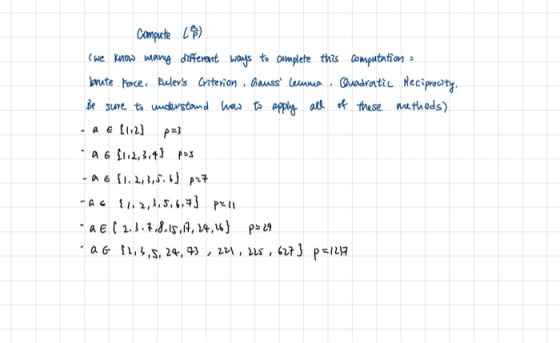 Compute (a/p)
(we know many different ways to complete this computation:
brute Force, Euler's Criterion, Gauss' Lemma, Quadratic Reciprocity.
Be sure to understand how to apply all of these methods)
- a ∈ {1,2} p=3
- a ∈ {1,2,3,4} p=5
- a ∈ {1,2,3,5,6} p=7
- a ∈ {1,2,3,5,6,7} p=11
- a ∈ {2,3,7,8,15,17,24,26} p=29
- a ∈ {2,3,5,24, , 221, 225, 627} p=1217